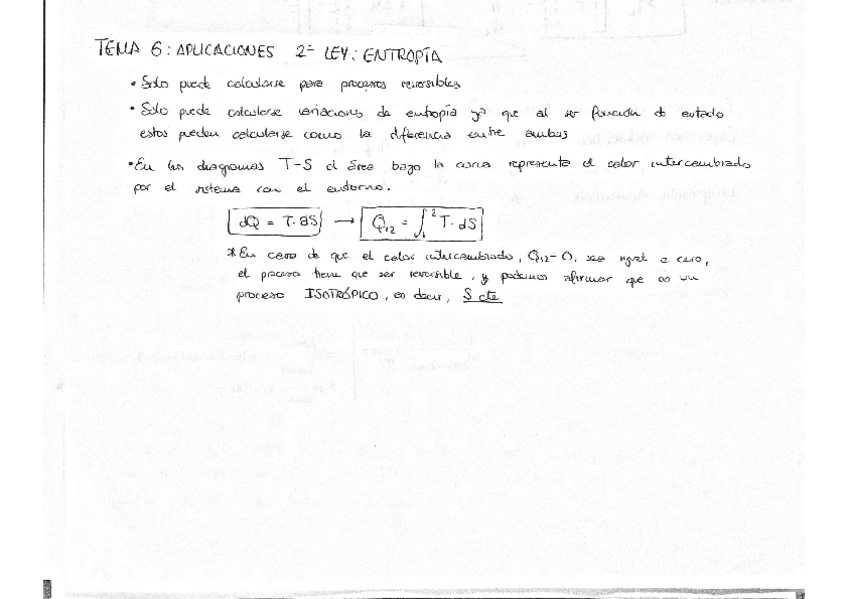 TEMA 6: APLICACIONES 2ª LEY: ENTROPÍA
• Solo puede calcularse para procesos reversibles
• Sólo puede calcularse variaciones de entropía ya que al ser función de estado
estos pueden calcularse como la diferencia entre ambus
• En los diagramas T-S el área bajo la curva representa el calor intercambiado
por el sistema con el entorno.
dQ = T·dS → Q₁₂ = ∫₁² T·dS
* En caso de que el calor intercambiado, Q₁₂=0, sea igual a cero,
el proceso tiene que ser reversible, y podemos afirmar que es un
proceso ISOTRÓPICO, es decir, S cte